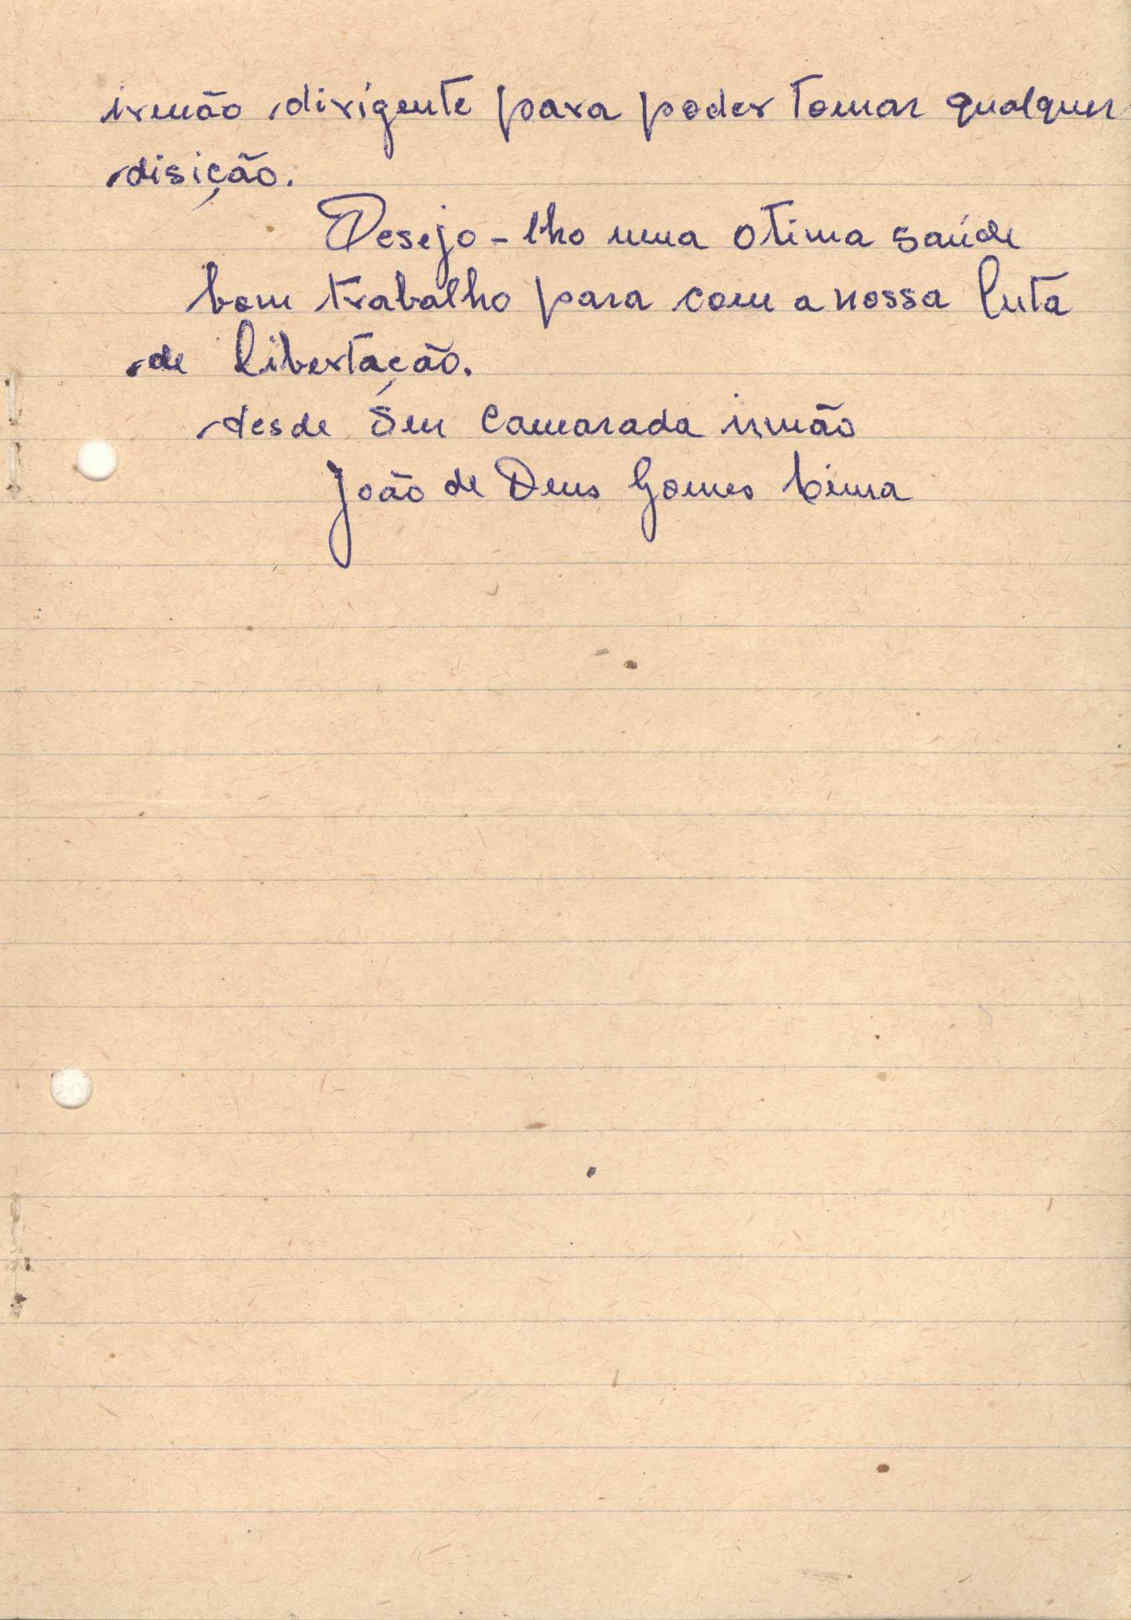 irmão dirigente para poder tomar qualquer
disição.
Desejo-lho uma otima saúde
bom trabalho para com a nossa luta
de libertação.
desde Seu Camarada irmão
João de Deus Gomes Lima